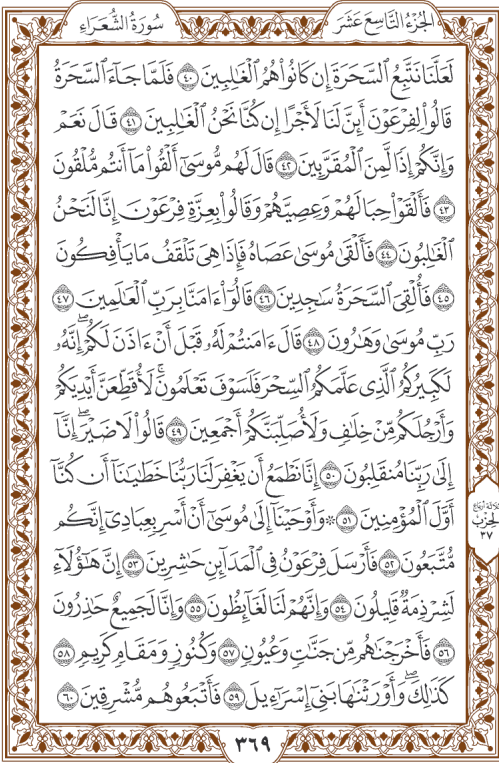 الجُزْءُ التَّاسِعَ عَشَرَ
سُورَةُ الشُّعَرَاءِ
لَعَلَّنَا نَتَّبِعُ ٱلسَّحَرَةَ إِن كَانُوا۟ هُمُ ٱلْغَـٰلِبِينَ ٤٠ فَلَمَّا جَآءَ ٱلسَّحَرَةُ
قَالُوا۟ لِفِرْعَوْنَ أَئِنَّ لَنَا لَأَجْرًا إِن كُنَّا نَحْنُ ٱلْغَـٰلِبِينَ ٤١ قَالَ نَعَمْ
وَإِنَّكُمْ إِذًا لَّمِنَ ٱلْمُقَرَّبِينَ ٤٢ قَالَ لَهُم مُّوسَىٰٓ أَلْقُوا۟ مَآ أَنتُم مُّلْقُونَ
٤٣ فَأَلْقَوْا۟ حِبَالَهُمْ وَعِصِيَّهُمْ وَقَالُوا۟ بِعِزَّةِ فِرْعَوْنَ إِنَّا لَنَحْنُ
ٱلْغَـٰلِبُونَ ٤٤ فَأَلْقَىٰ مُوسَىٰ عَصَاهُ فَإِذَا هِىَ تَلْقَفُ مَا يَأْفِكُونَ
٤٥ فَأُلْقِىَ ٱلسَّحَرَةُ سَـٰجِدِينَ ٤٦ قَالُوٓا۟ ءَامَنَّا بِرَبِّ ٱلْعَـٰلَمِينَ ٤٧
رَبِّ مُوسَىٰ وَهَـٰرُونَ ٤٨ قَالَ ءَامَنتُمْ لَهُۥ قَبْلَ أَنْ ءَاذَنَ لَكُمْ ۖ إِنَّهُۥ
لَكَبِيرُكُمُ ٱلَّذِى عَلَّمَكُمُ ٱلسِّحْرَ فَلَسَوْفَ تَعْلَمُونَ ۚ لَأُقَطِّعَنَّ أَيْدِيَكُمْ
وَأَرْجُلَكُم مِّنْ خِلَـٰفٍ وَلَأُصَلِّبَنَّكُمْ أَجْمَعِينَ ٤٩ قَالُوا۟ لَا ضَيْرَ ۖ إِنَّآ
إِلَىٰ رَبِّنَا مُنقَلِبُونَ ٥٠ إِنَّا نَطْمَعُ أَن يَغْفِرَ لَنَا رَبُّنَا خَطَـٰيَـٰنَآ أَن كُنَّآ
أَوَّلَ ٱلْمُؤْمِنِينَ ٥١ ۞ وَأَوْحَيْنَآ إِلَىٰ مُوسَىٰٓ أَنْ أَسْرِ بِعِبَادِىٓ إِنَّكُم
مُّتَّبَعُونَ ٥٢ فَأَرْسَلَ فِرْعَوْنُ فِى ٱلْمَدَآئِنِ حَـٰشِرِينَ ٥٣ إِنَّ هَـٰٓؤُلَآءِ
لَشِرْذِمَةٌ قَلِيلُونَ ٥٤ وَإِنَّهُمْ لَنَا لَغَآئِظُونَ ٥٥ وَإِنَّا لَجَمِيعٌ حَـٰذِرُونَ
٥٦ فَأَخْرَجْنَـٰهُم مِّن جَنَّـٰتٍ وَعُيُونٍ ٥٧ وَكُنُوزٍ وَمَقَامٍ كَرِيمٍ ٥٨
كَذَٰلِكَ ۖ وَأَوْرَثْنَـٰهَا بَنِىٓ إِسْرَٰٓءِيلَ ٥٩ فَأَتْبَعُوهُم مُّشْرِقِينَ ٦٠
ثلاثة أرباع
الحِزْب
٣٧
٣٦٩